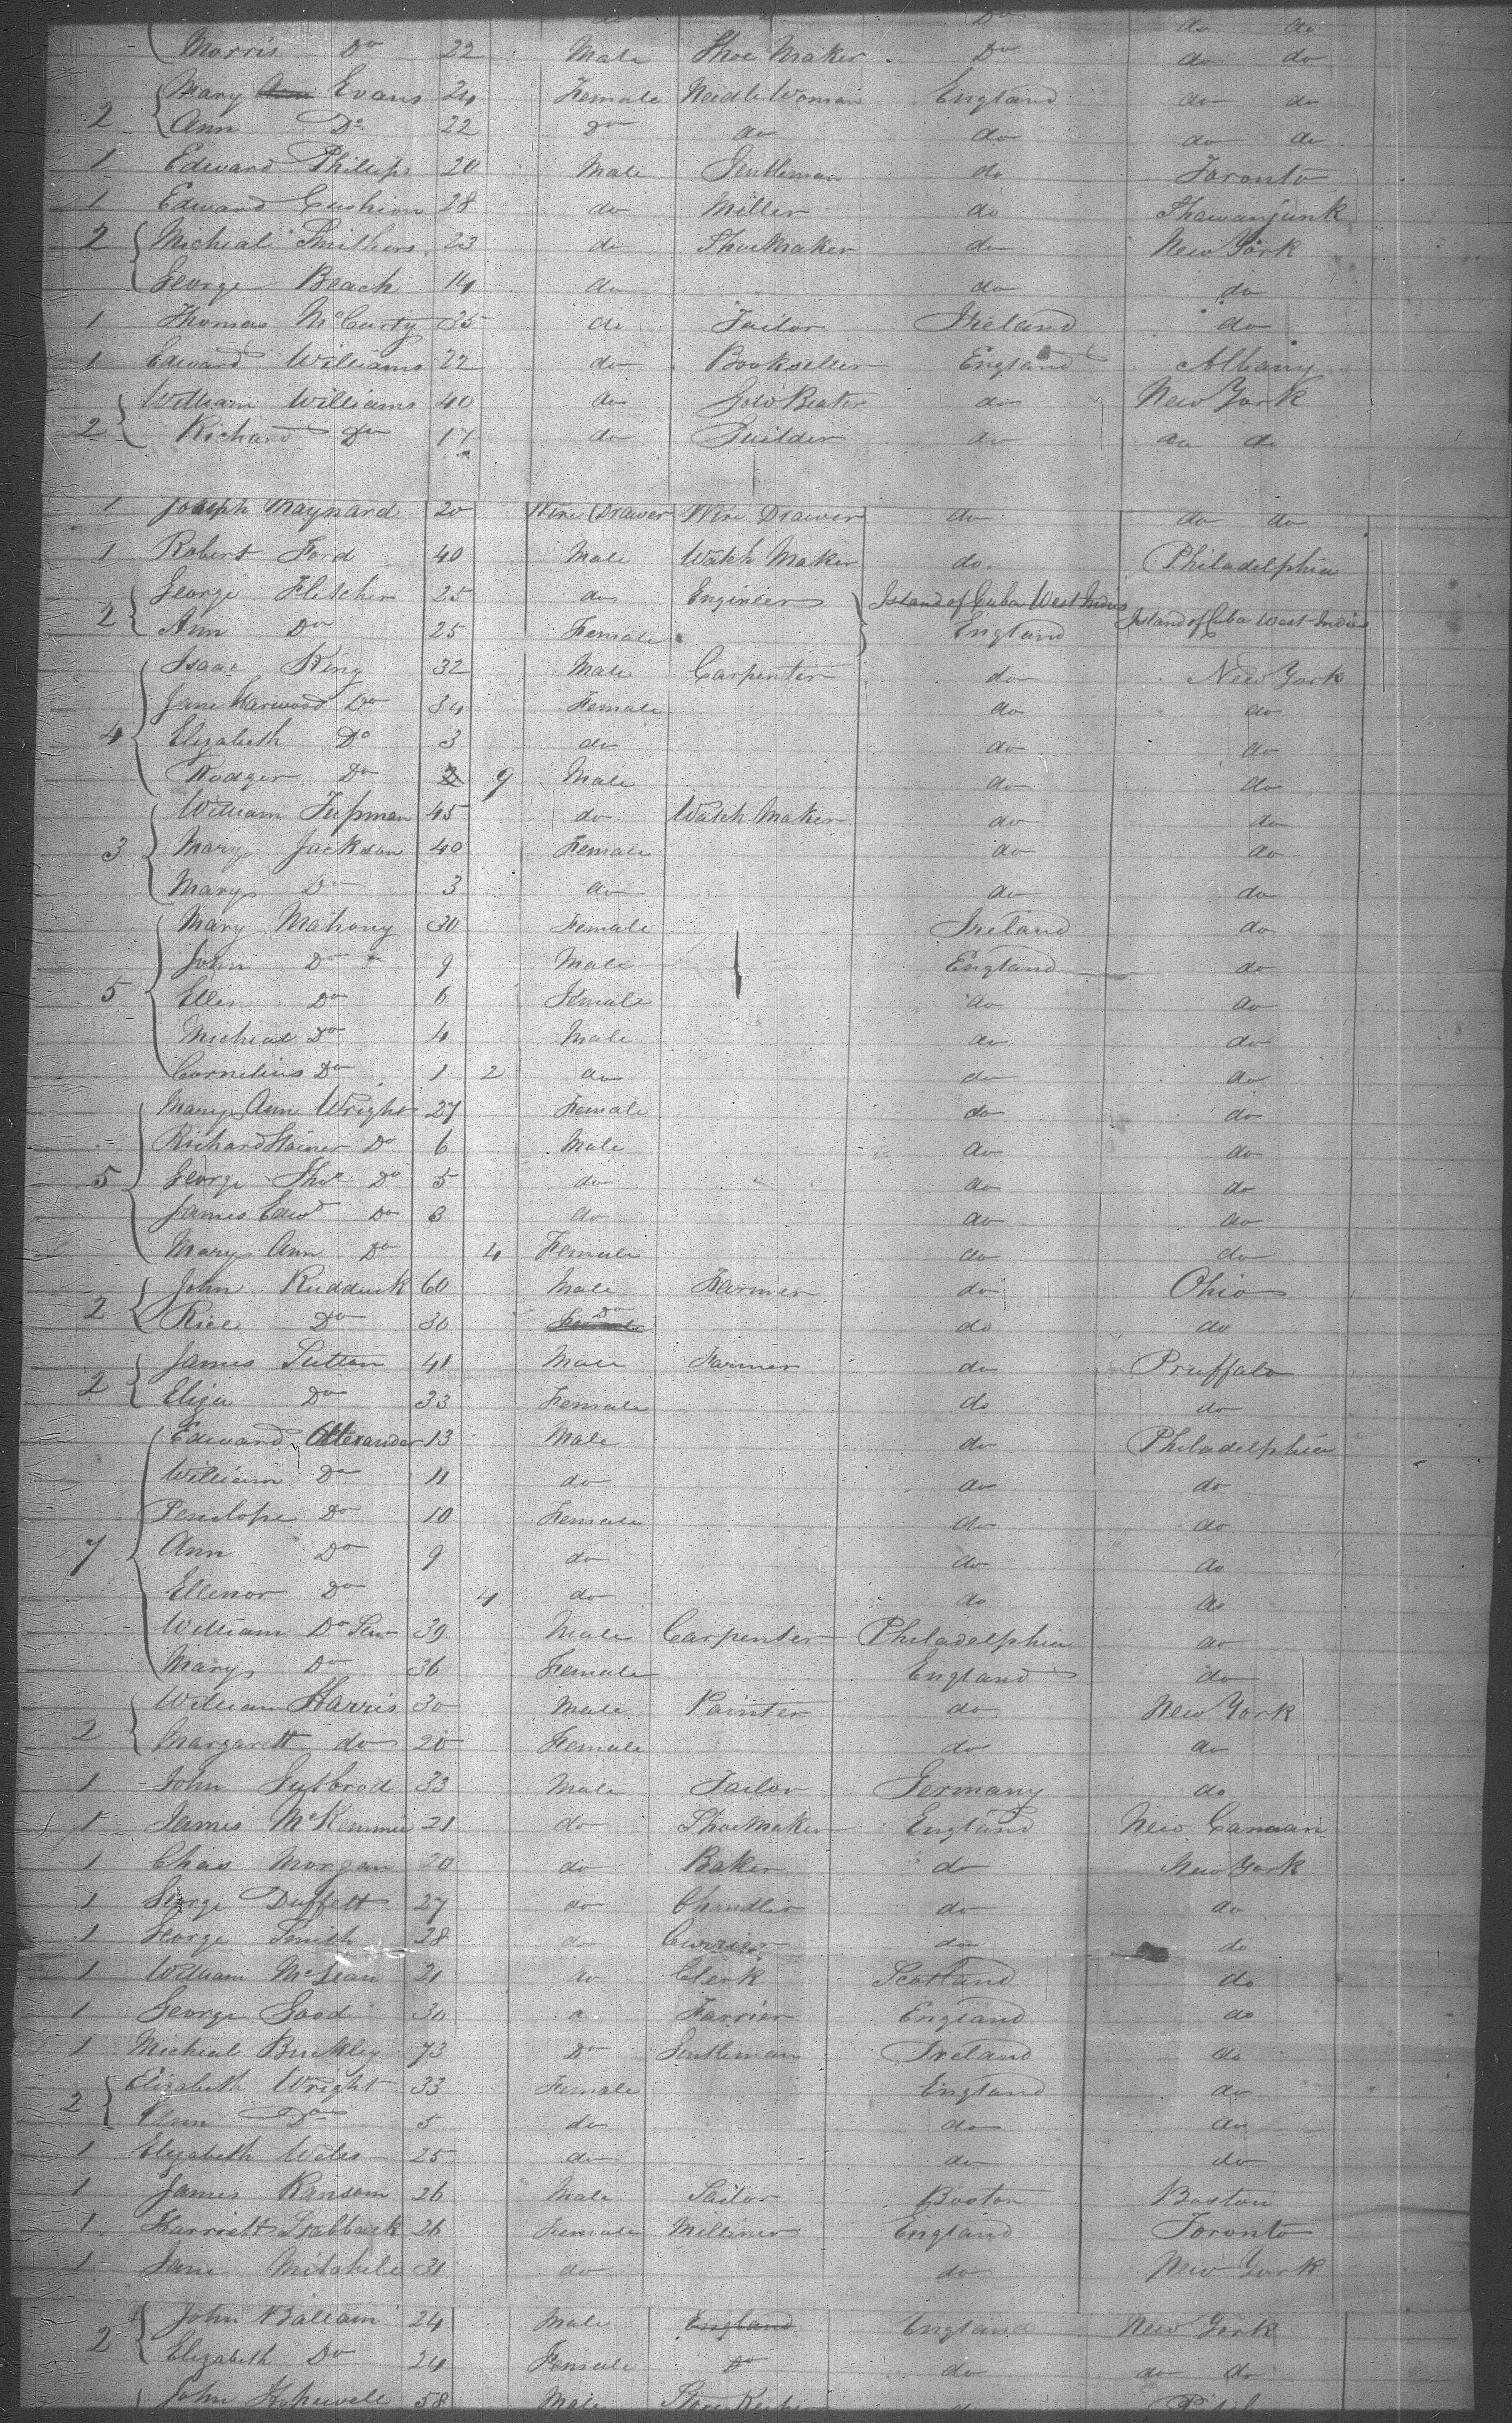 do Do do do
Morris Do 22 Male Shoe Maker Do do do
Mary Ann Evans 24 Female Needle Woman England do do
2 Ann Do 22 Do do do do do
1 Edward Phillips 20 Male Gentleman do Toronto
1 Edward Cushion 28 do Miller do Shawanjunk
2 Micheal Smithers 23 do Shoemaker do New York
George Beach 14 do do do
1 Thomas McCarty 35 do Tailor Ireland do
1 Edward Williams 22 do Bookseller England Albany
William Williams 40 do Gold Beater do New York
2 Richard Do 17 do Guilder do do do
1 Joseph Maynard 20 Wire Drawer Wire Drawer do do do
1 Robert Ford 40 Male Watch Maker do Philadelphia
George Fletcher 25 do Engineer Island of Cuba West Indies
2 Ann Do 25 Female England Island of Cuba West Indies
Isaac King 32 Male Carpenter do New York
Jane Harwood Do 34 Female do do
4 Elizabeth Do 3 do do do
Rodger Do 2 9 Male do do
William Tupman 45 do Watch Maker do do
3 Mary Jackson 40 Female do do
Mary Do 3 do do do
Mary Mahony 30 Female Ireland do
John Do 9 Male England do
5 Ellen Do 6 Female do do
Micheal Do 4 Male do do
Cornelius Do 1 2 do do do
Mary Ann Wright 27 Female do do
Richard Stainer Do 6 Male do do
5 George Thos Do 5 do do do
James Edwd Do 3 do do do
Mary Ann Do 4 Female do do
John Rudduck 60 Male Farmer do Ohio
2 Rice Do 30 Female Do do do
James Sutton 41 Male Farmer do Pruffalo
2 Eliza Do 33 Female do do
Edward Allexander 13 Male do Philadelphia
William Do 11 do do do
Penelope Do 10 Female do do
7 Ann Do 9 do do do
Ellenor Do 4 do do do
William Do Sen 39 Male Carpenter Philadelphia do
Mary Do 36 Female England do
William Harris 30 Male Painter do New York
2 Margarett do 20 Female do do
1 John Gutbrod 33 Male Tailor Germany do
1 James McKemmie 21 do Shoemaker England New Canaan
1 Chas Morgan 20 do Baker do New York
1 George Duffett 27 do Chandler do do
1 George Smith 28 do Currier do do
1 William McLean 21 do Clerk Scotland do
1 George Good 30 Farrier England do
1 Micheal Buckley 73 Do Gentleman Ireland do
Elizabeth Wright 33 Female England do
2 Do 5 do do do
1 Elizabeth Wiles 25 do do do
1 James Ransom 26 Male Sailor Boston Boston
1 Harriett 26 Female Milliner England Toronto
1 Jane Mitchele 31 do do New York
John Balleam 24 Male England England New York
2 Elizabeth Do 24 Female Do do do do
John Hopewell 58 Male Store Keeper do Phil